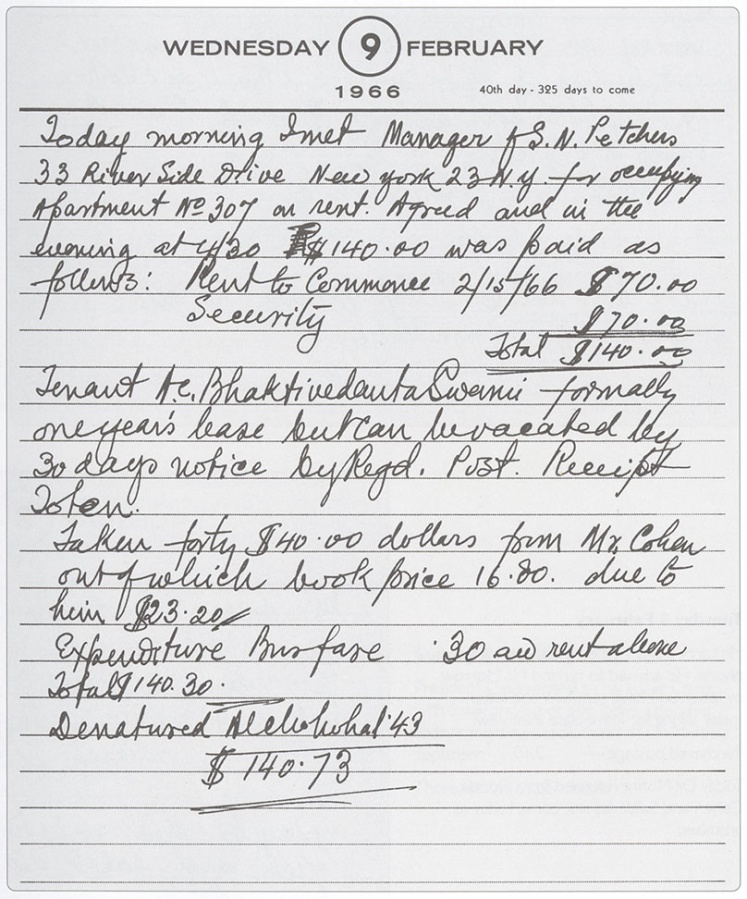 WEDNESDAY 9 FEBRUARY
1966
40th day - 325 days to come
Today morning I met Manager of S. N. Petchers
33 River Side Drive New york 23 N.Y. for occupying
Apartment No 307 on rent. Agreed and in the
evening at 4/30 $140.00 was paid as
follows: Rent to Commence 2/15/66 $70.00
Security $70.00
Total $140.00
Tenant A.C. Bhaktivedanta Swami formally
one year's lease but can be vacated by
30 days notice by Regd. Post. Receipt
Token.
Taken forty $40.00 dollars from Mr. Cohen
out of which book price 16.80. due to
him $23.20/
Expenditure Bus fare .30 and rent above
Total $140.30.
Denatured Alchohohal .43
$140.73